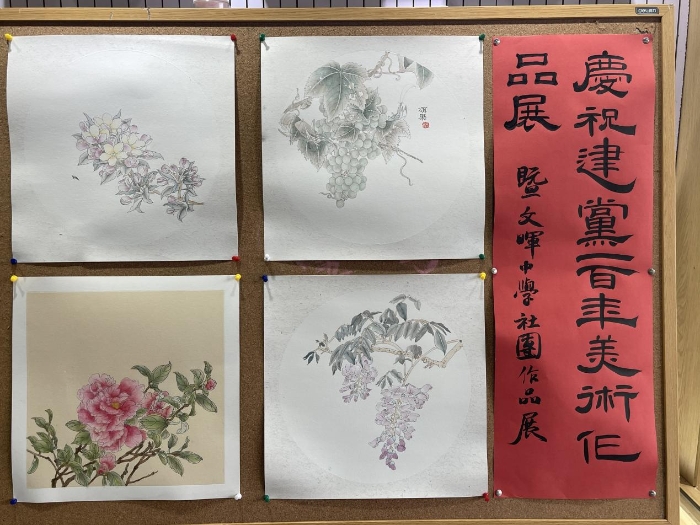 慶祝建黨百年美術作
品展
暨文暉中學社團作品展